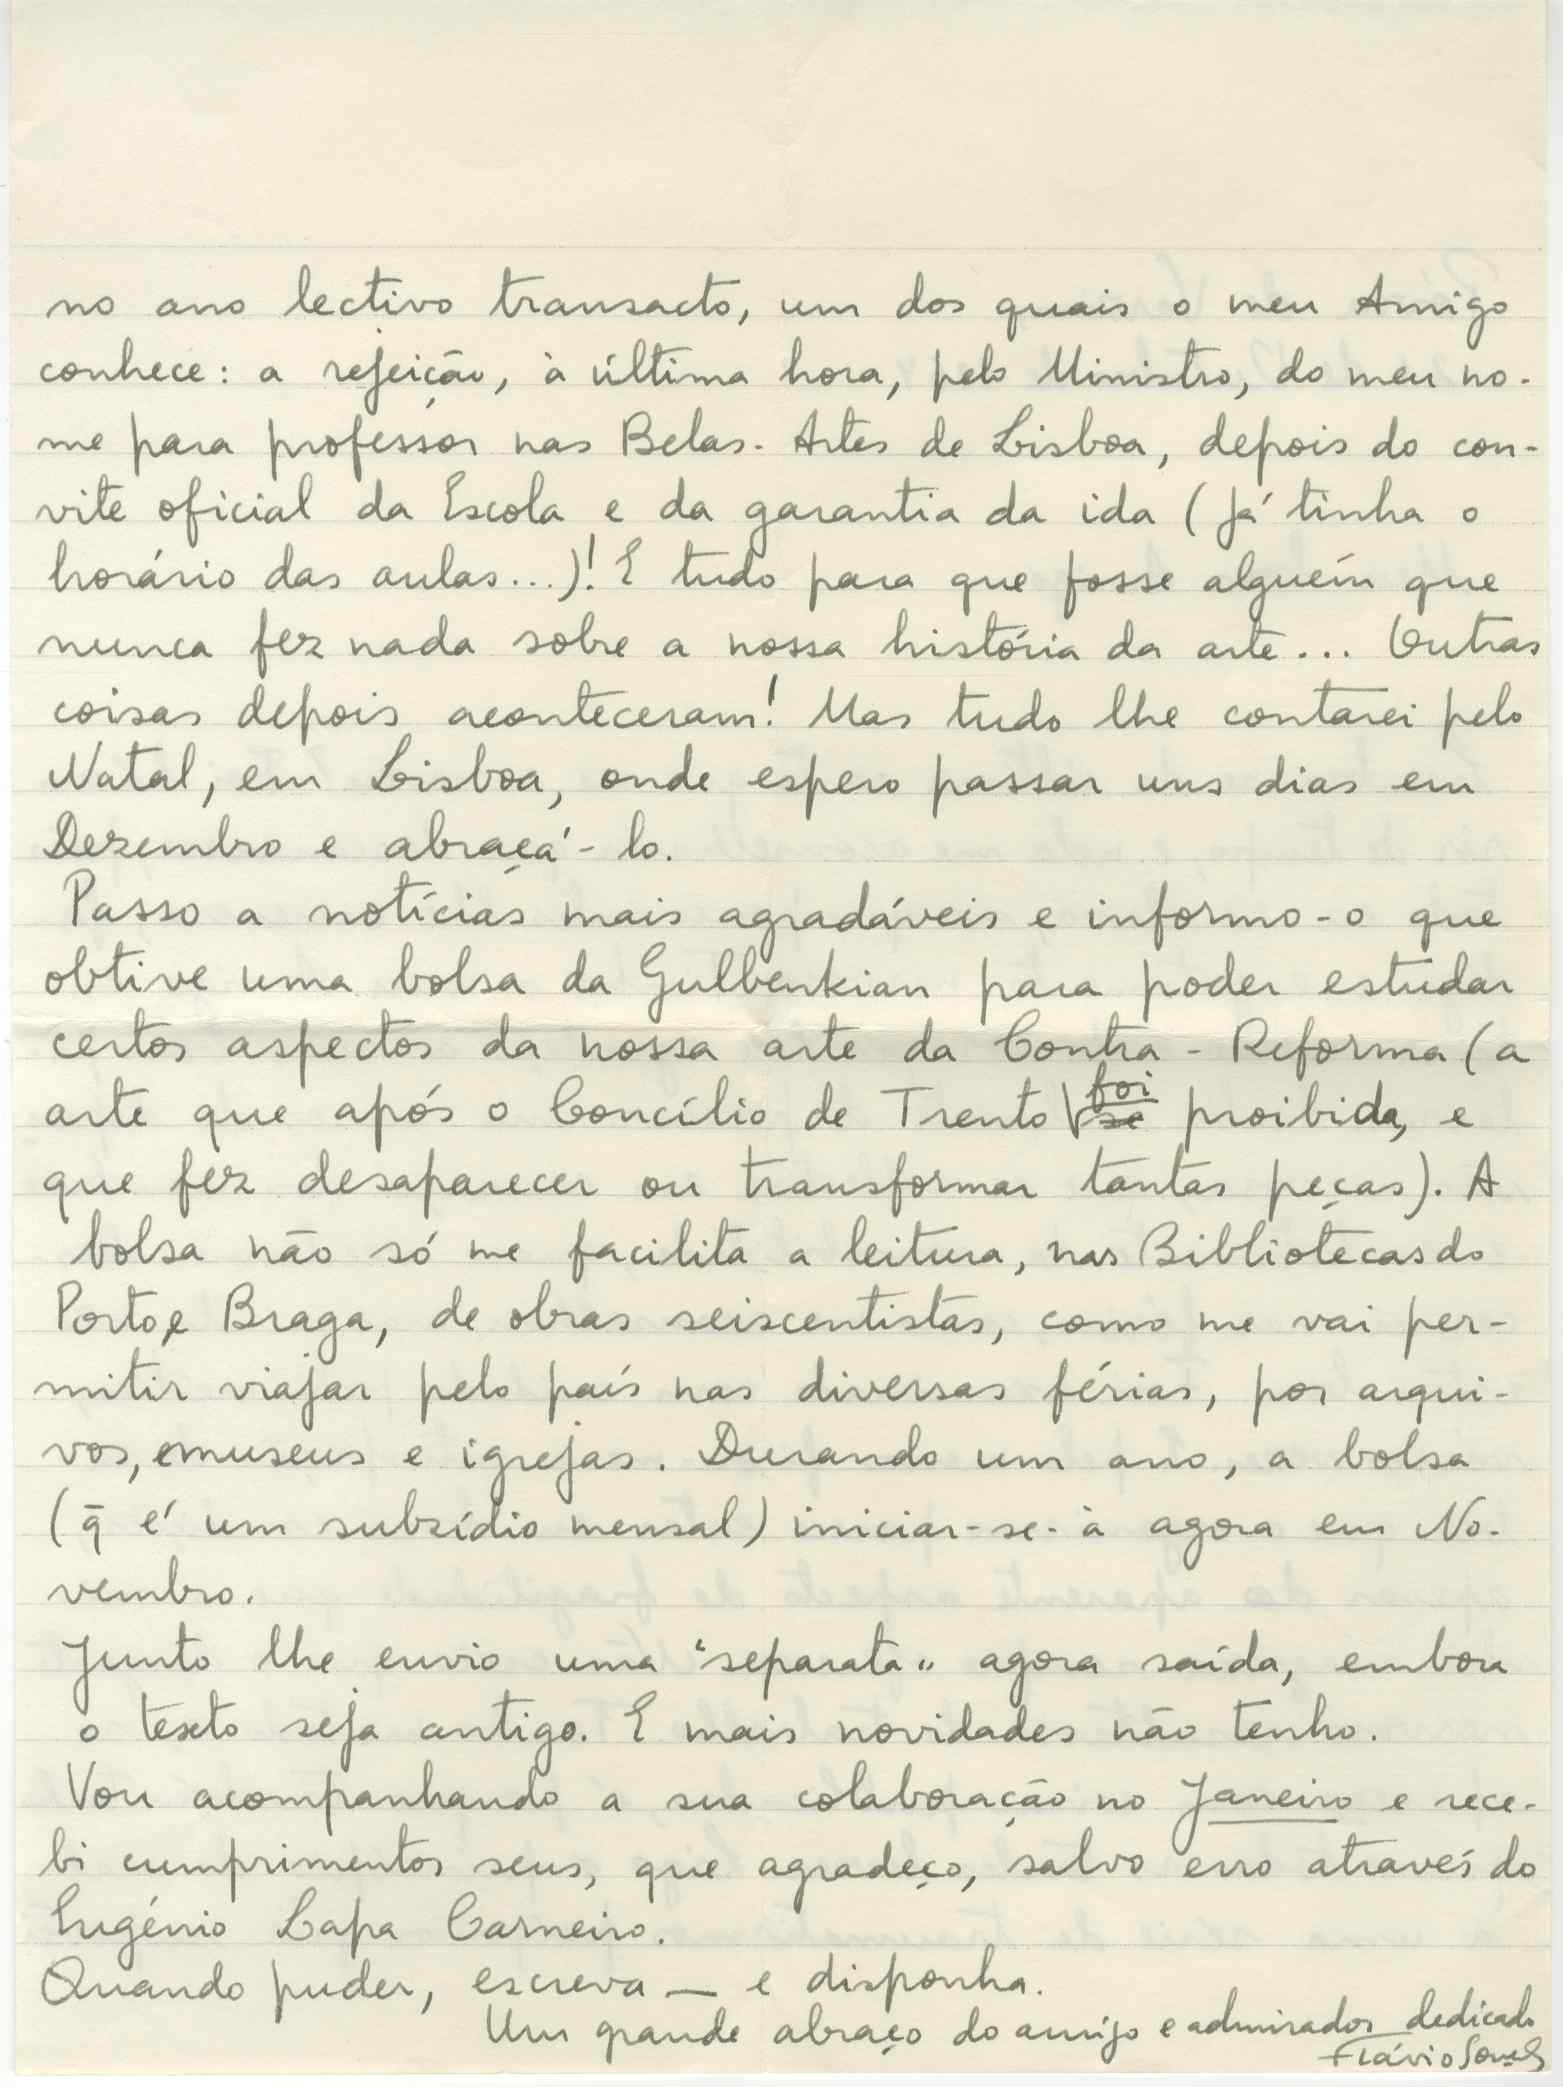 no ano lectivo transacto, um dos quais o meu Amigo
conhece: a rejeição, à última hora, pelo Ministro, do meu no-
me para professor nas Belas-Artes de Lisboa, depois do con-
vite oficial da Escola e da garantia da ida (já tinha o
horário das aulas...)! E tudo para que fosse alguém que
nunca fez nada sobre a nossa história da arte... Outras
coisas depois aconteceram! Mas tudo lhe contarei pelo
Natal, em Lisboa, onde espero passar uns dias em
Dezembro e abraçá-lo.
Passo a notícias mais agradáveis e informo-o que
obtive uma bolsa da Gulbenkian para poder estudar
certos aspectos da nossa arte da Contra-Reforma (a
arte que após o Concílio de Trento foi se proibida, e
que fez desaparecer ou transformar tantas peças). A
bolsa não só me facilita a leitura, nas Bibliotecas do
Porto e Braga, de obras seiscentistas, como me vai per-
mitir viajar pelo país nas diversas férias, por arqui-
vos, museus e igrejas. Durando um ano, a bolsa
(q̃ é um subsídio mensal) iniciar-se-à agora em No-
vembro.
Junto lhe envio uma "separata" agora saída, embora
o texto seja antigo. E mais novidades não tenho.
Vou acompanhando a sua colaboração no Janeiro e rece-
bi cumprimentos seus, que agradeço, salvo erro através do
Eugénio Lapa Carneiro.
Quando puder, escreva — e disponha.
Um grande abraço do amigo e admirador dedicado
Flávio Gonçalves